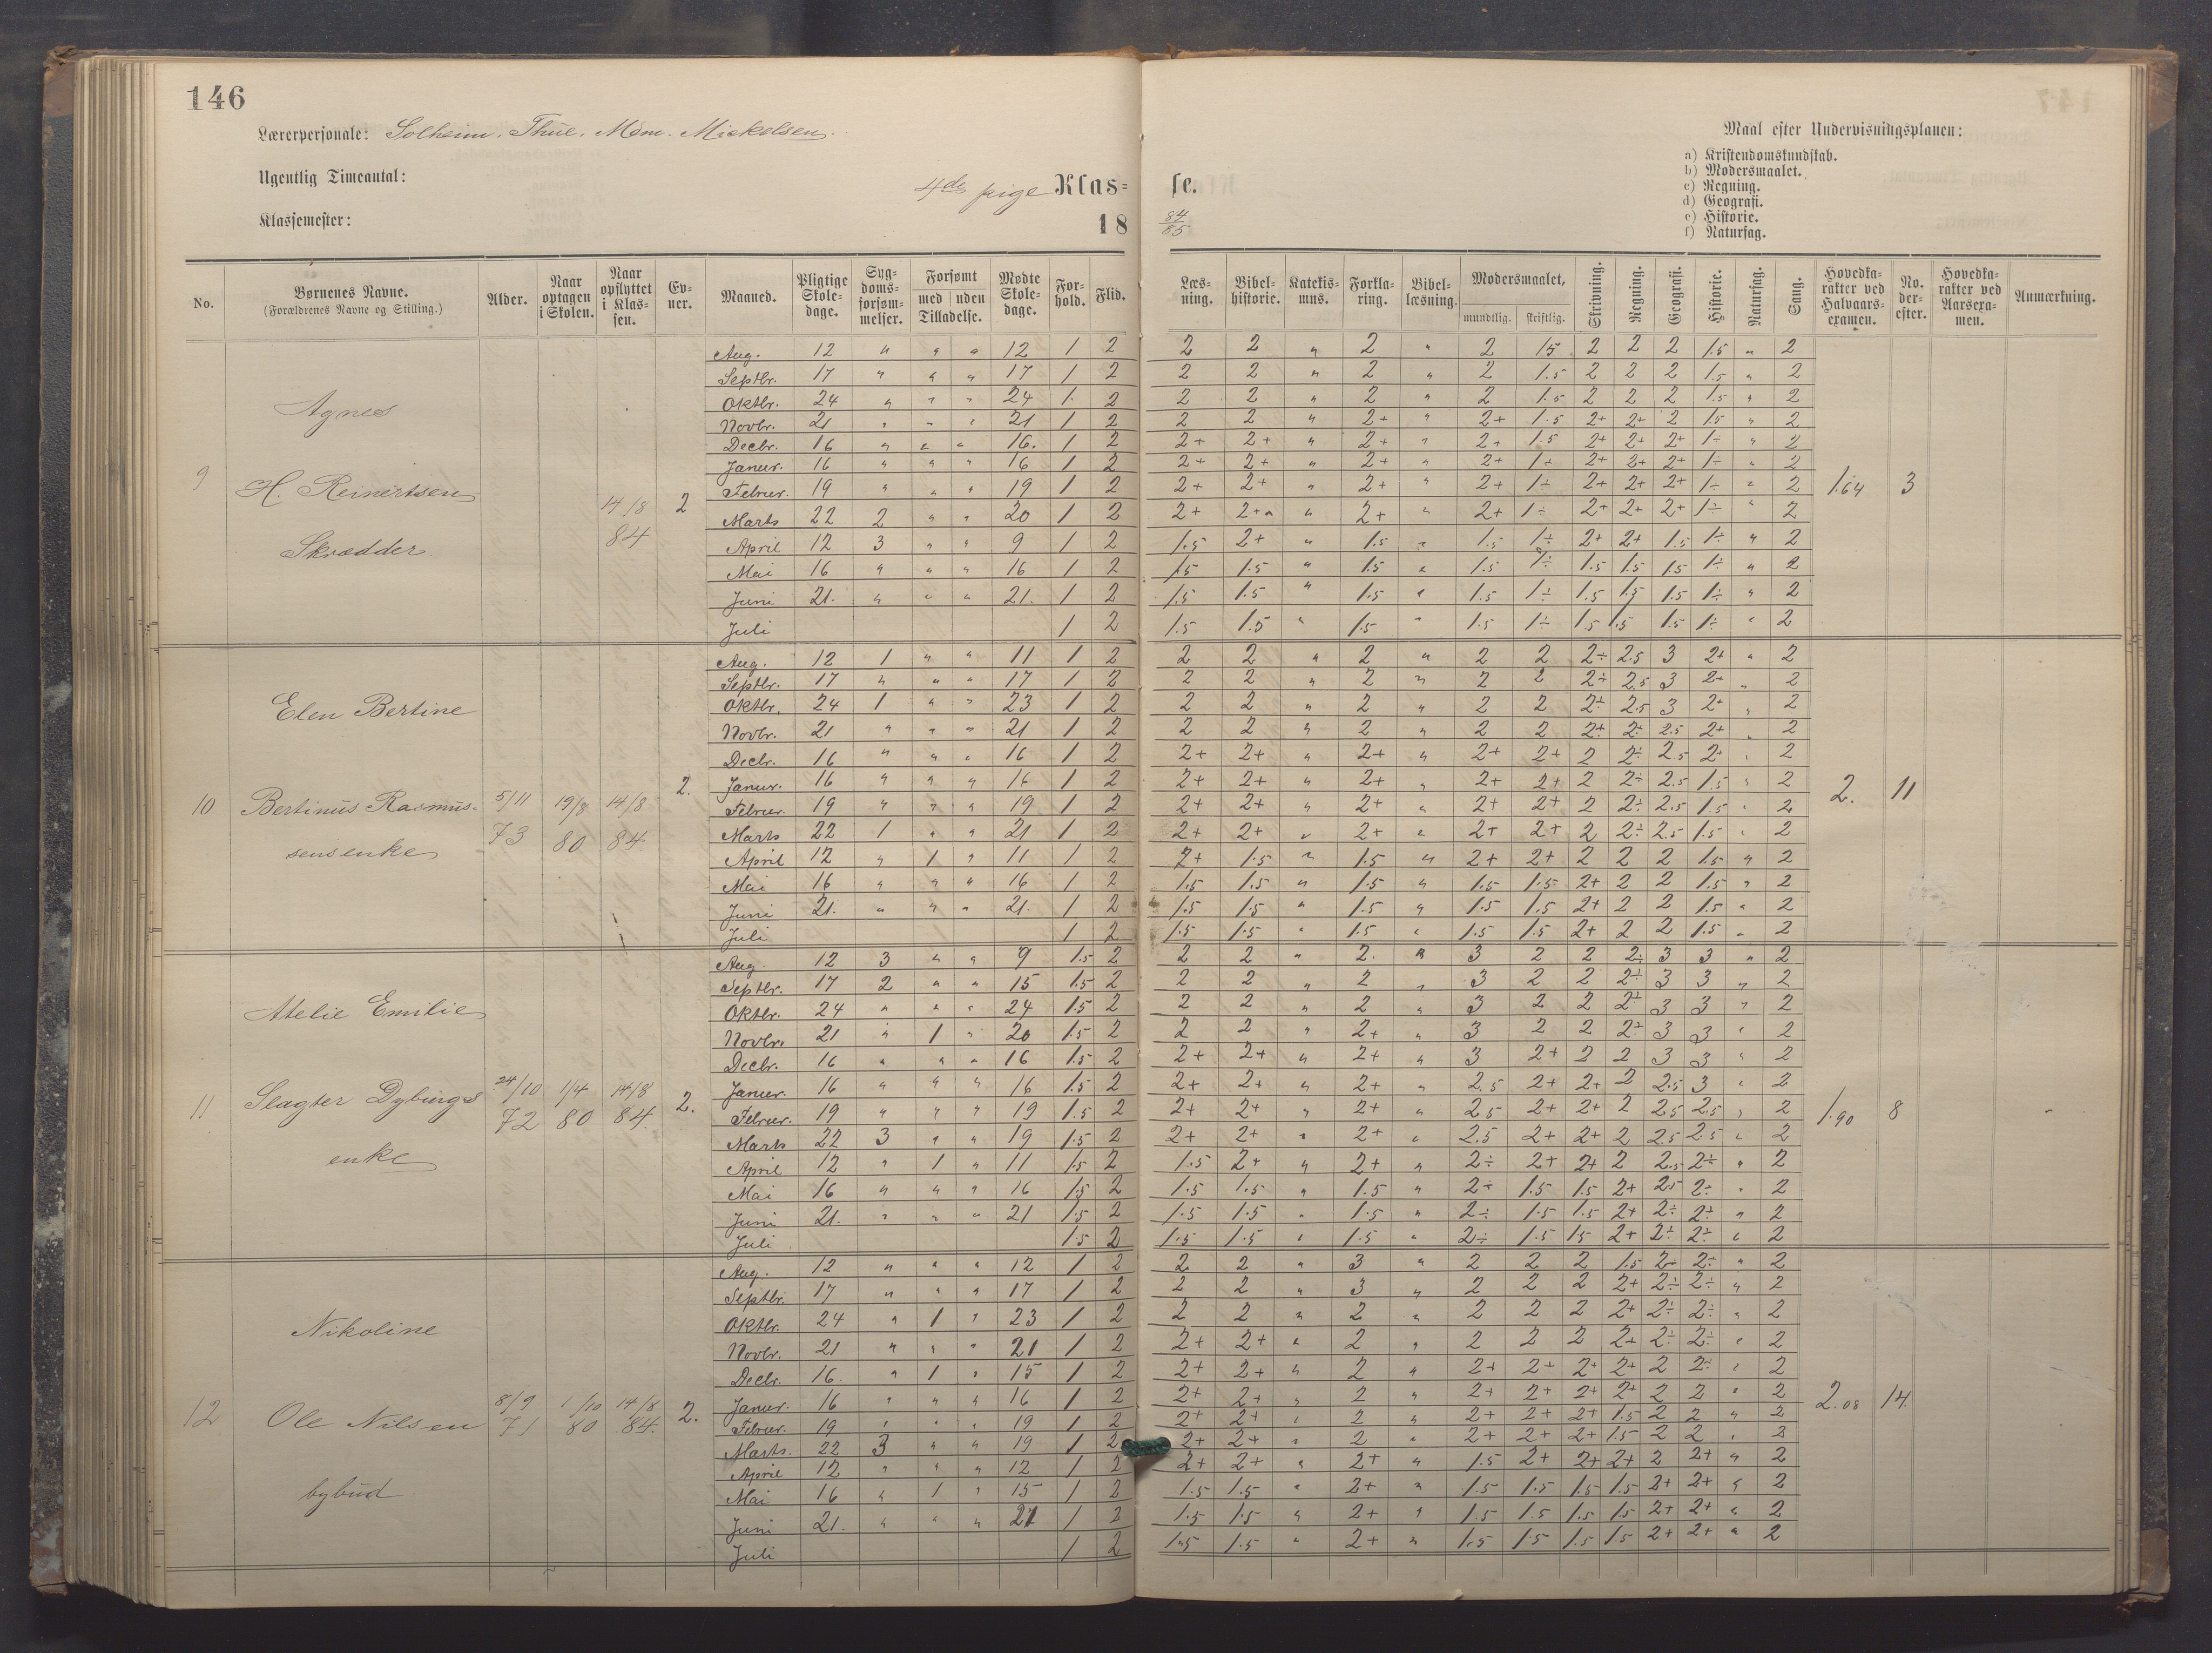 146
Lærerpersonale: Solheim, Thue, Mdm. Mickelsen.
Ugentlig Timeantal:
Klassemester:
4de pige Klas= se.
18 84/85
Maal efter Undervisningsplanen:
a) Kristendomskundskab.
b) Modersmaalet.
c) Regning.
d) Geografi.
e) Historie.
f) Naturfag.
No. Børnenes Navne. (Forældrenes Navne og Stilling.) Alder. Naar optagen i Skolen. Naar opflyttet i Klassen. Evner. Maaned. Pligtige Skoledage. Sygdomsforsømmelser. Forsømt med uden Tilladelse. Mødte Skoledage. Forhold. Flid. Læsning. Bibelhistorie. Katekismus. Forklaring. Bibellæsning. Modersmaalet, mundtlig. skriftlig. Skrivning. Regning. Geografi. Historie. Naturfag. Sang. Hovedkarakter ved Halvaarsexamen. No. derefter. Hovedkarakter ved Aarsexamen. Anmærkning.
9 Agnes H. Reinertsen Skrædder 14/8 84 2 1.64 3
Aug. 12 " " " 12 1 2 2 2 " 2 " 2 1.5 2 2 2 1.5 " 2
Septbr. 17 " " " 17 1 2 2 2 " 2 " 2 1.5 2 2 2 1.5 " 2
Oktbr. 24 " " " 24 1. 2 2 2 " 2 " 2 1.5 2 2 2 1.5 " 2
Novbr. 21 " " " 21 1 2 2 2 " 2+ " 2+ 1.5 2+ 2+ 2 1.5 " 2
Decbr. 16 " " " 16. 1 2 2+ 2+ " 2+ " 2+ 1.5 2+ 2+ 2+ 1÷ " 2
Januar. 16 " " " 16 1 2 2+ 2+ " 2+ " 2+ 1÷ 2+ 2+ 2+ 1÷ " 2
Februar. 19 " " " 19 1 2 2+ 2+ " 2+ " 2+ 1÷ 2+ 2+ 2+ 1÷ " 2
Marts 22 2 " " 20 1 2 2+ 2+ " 2+ " 2+ 1÷ 2+ 2+ 2+ 1÷ " 2
April 12 3 " " 9 1 2 1.5 2+ " 1.5 " 1.5 1÷ 2+ 2+ 1.5 1÷ " 2
Mai 16 " " " 16 1 2 1.5 1.5 " 1.5 " 1.5 1÷ 1.5 1.5 1.5 1÷ " 2
Juni 21. " " " 21. 1 2 1.5 1.5 " 1.5 " 1.5 1÷ 1.5 1.5 1.5 1÷ " 2
Juli 1 2 1.5 1.5 " 1.5 " 1.5 1÷ 1.5 1.5 1.5 1÷ " 2
10 Elen Bertine Bertinus Rasmussens enke 5/11 73 19/8 80 14/8 84. 2. 2. 11
Aug. 12 1 " " 11 1 2 2 2 " 2 " 2 2 2÷ 2.5 3 2+ " 2
Septbr. 17 " " " 17 1 2 2 2 " 2 " 2 2 2÷ 2.5 3 2+ " 2
Oktbr. 24 1 " " 23 1 2 2 2 " 2 " 2 2 2÷ 2.5 3 2+ " 2
Novbr. 21 " " " 21 1 2 2 2 " 2 " 2 2 2÷ 2÷ 2.5 2+ " 2
Decbr. 16 " " " 16 1 2 2+ 2+ " 2+ " 2+ 2+ 2 2÷ 2.5 2+ " 2
Januar. 16 " " " 16 1 2 2+ 2+ " 2+ " 2+ 2+ 2 2÷ 2.5 1.5 " 2
Februar. 19 " " " 19 1 2 2+ 2+ " 2+ " 2+ 2+ 2 2÷ 2.5 1.5 " 2
Marts 22 1 " " 21 1 2 2+ 2+ " 2+ " 2+ 2+ 2 2÷ 2.5 1.5 " 2
April 12 " 1 " 11 1 2 2+ 1.5 " 1.5 " 2+ 2+ 2 2 2 1.5 " 2
Mai 16 " " " 16 1 2 1.5 1.5 " 1.5 " 1.5 1.5 2+ 2 2 1.5 " 2
Juni 21. " " " 21. 1 2 1.5 1.5 " 1.5 " 1.5 1.5 2+ 2 2 1.5 " 2
Juli 1 2 1.5 1.5 " 1.5 " 1.5 1.5 2+ 2 2 1.5 " 2
11 Atelie Emilie Slagter Dybings enke 24/10 72 1/4 80 14/8 84. 2. 1.90 8
Aug. 12 3 " " 9 1.5 2 2 2 " 2. " 3 2 2 2÷ 3 3 " 2
Septbr. 17 2 " " 15 1.5 2 2 2 " 2 " 3 2 2 2÷ 3 3 " 2
Oktbr. 24 " " " 24 1.5 2 2 2 " 2 " 3 2 2 2÷ 3 3 " 2
Novbr. 21 " 1 " 20 1.5 2 2 2 " 2+ " 3 2 2 2÷ 3 3 " 2
Decbr. 16 " " " 16 1.5 2 2+ 2+ " 2+ " 3 2+ 2 2 3 3 " 2
Januar. 16 " " " 16 1.5 2 2+ 2+ " 2+ " 2.5 2+ 2+ 2 2.5 3 " 2
Februar. 19 " " " 19 1.5 2 2+ 2+ " 2+ " 2.5 2+ 2+ 2 2.5 2.5 " 2
Marts 22 3 " " 19 1.5 2 2+ 2+ " 2+ " 2.5 2+ 2+ 2 2.5 2.5 " 2
April 12 " 1 " 11 1.5 2 1.5 2+ " 2+ " 2÷ 2+ 2+ 2 2.5 2÷ " 2
Mai 16 " " " 16 1.5 2 1.5 1.5 " 1.5 " 2÷ 1.5 1.5 2+ 2.5 2÷ " 2
Juni 21. " " " 21 1.5 2 1.5 1.5 " 1.5 " 2÷ 1.5 1.5 2+ 2÷ 2÷ " 2
Juli 1.5 2 1.5 1.5 " 1.5 " 2÷ 1.5 1.5 2+ 2÷ 2÷ " 2
12 Nikoline Ole Nilsen bybud 8/9 71 1/10 80 14/8 84. 2. 2.08 14.
Aug. 12 " " " 12 1 2 2 2 " 3 " 2 2 2 1.5 2÷ 2÷ " 2
Septbr. 17 " " " 17 1 2 2 2 " 3 " 2 2 2 2+ 2÷ 2÷ " 2
Oktbr. 24 " 1 " 23 1 2 2 2 " 2 " 2 2 2 2+ 2÷ 2÷ " 2
Novbr. 21 " " " 21 1 2 2+ 2+ " 2 " 2 2 2 2+ 2÷ 2÷ " 2
Decbr. 16. " 1 " 15 1 2 2+ 2+ " 2 " 2+ 2+ 2+ 2+ 2 2÷ " 2
Januar. 16 " " " 16 1 2 2+ 2+ " 2 " 2+ 2+ 2+ 2+ 2 2 " 2
Februar. 19 " " " 19 1 2 2+ 2+ " 2 " 2+ 2+ 2+ 1.5 2 2 " 2
Marts. 22 3 " " 19 1 2 2+ 2+ " 2 " 2+ 2+ 2+ 1.5 2 2 " 2
April 12 " " " 12 1 2 2+ 2+ " 2+ " 1.5 2+ 2+ 2+ 2 2+ " 2
Mai 16 " 1 " 15 1 2 1.5 1.5 " 2+ " 1.5 1.5 1.5 1.5 2+ 2+ " 2
Juni 21. " " " 21 1 2 1.5 1.5 " 2+ " 1.5 1.5 1.5 1.5 2+ 2+ " 2
Juli 1 2 1.5 1.5 " 2+ " 1.5 1.5 1.5 1.5 2+ 2+ " 2